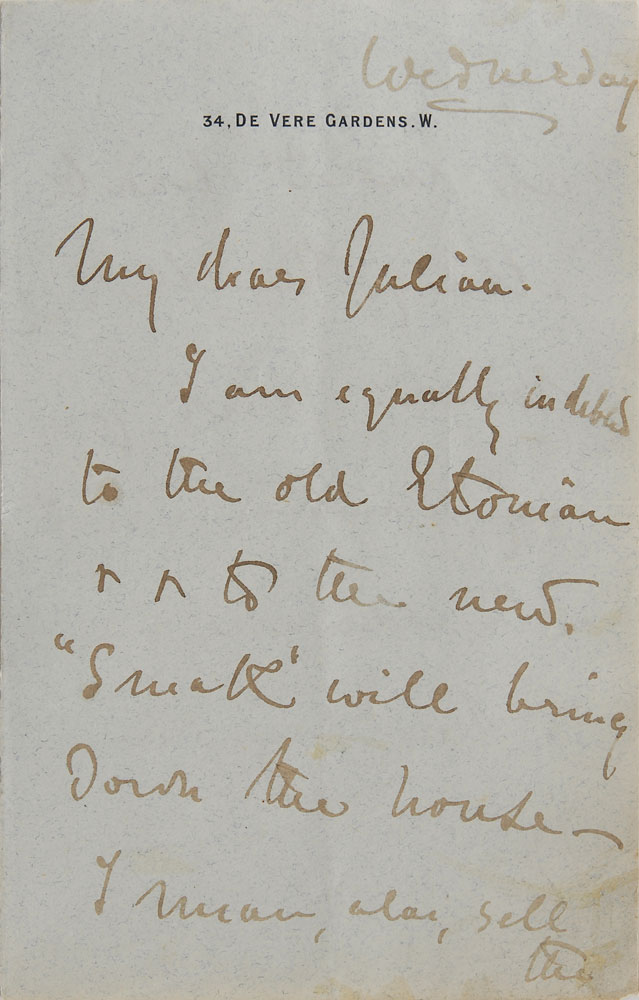 Wednesday
34, DE VERE GARDENS. W.
My dear Julian.
I am equally indebted
to the old Etonian
& to the new.
will bring
down the house —
I mean, alas, sell
the